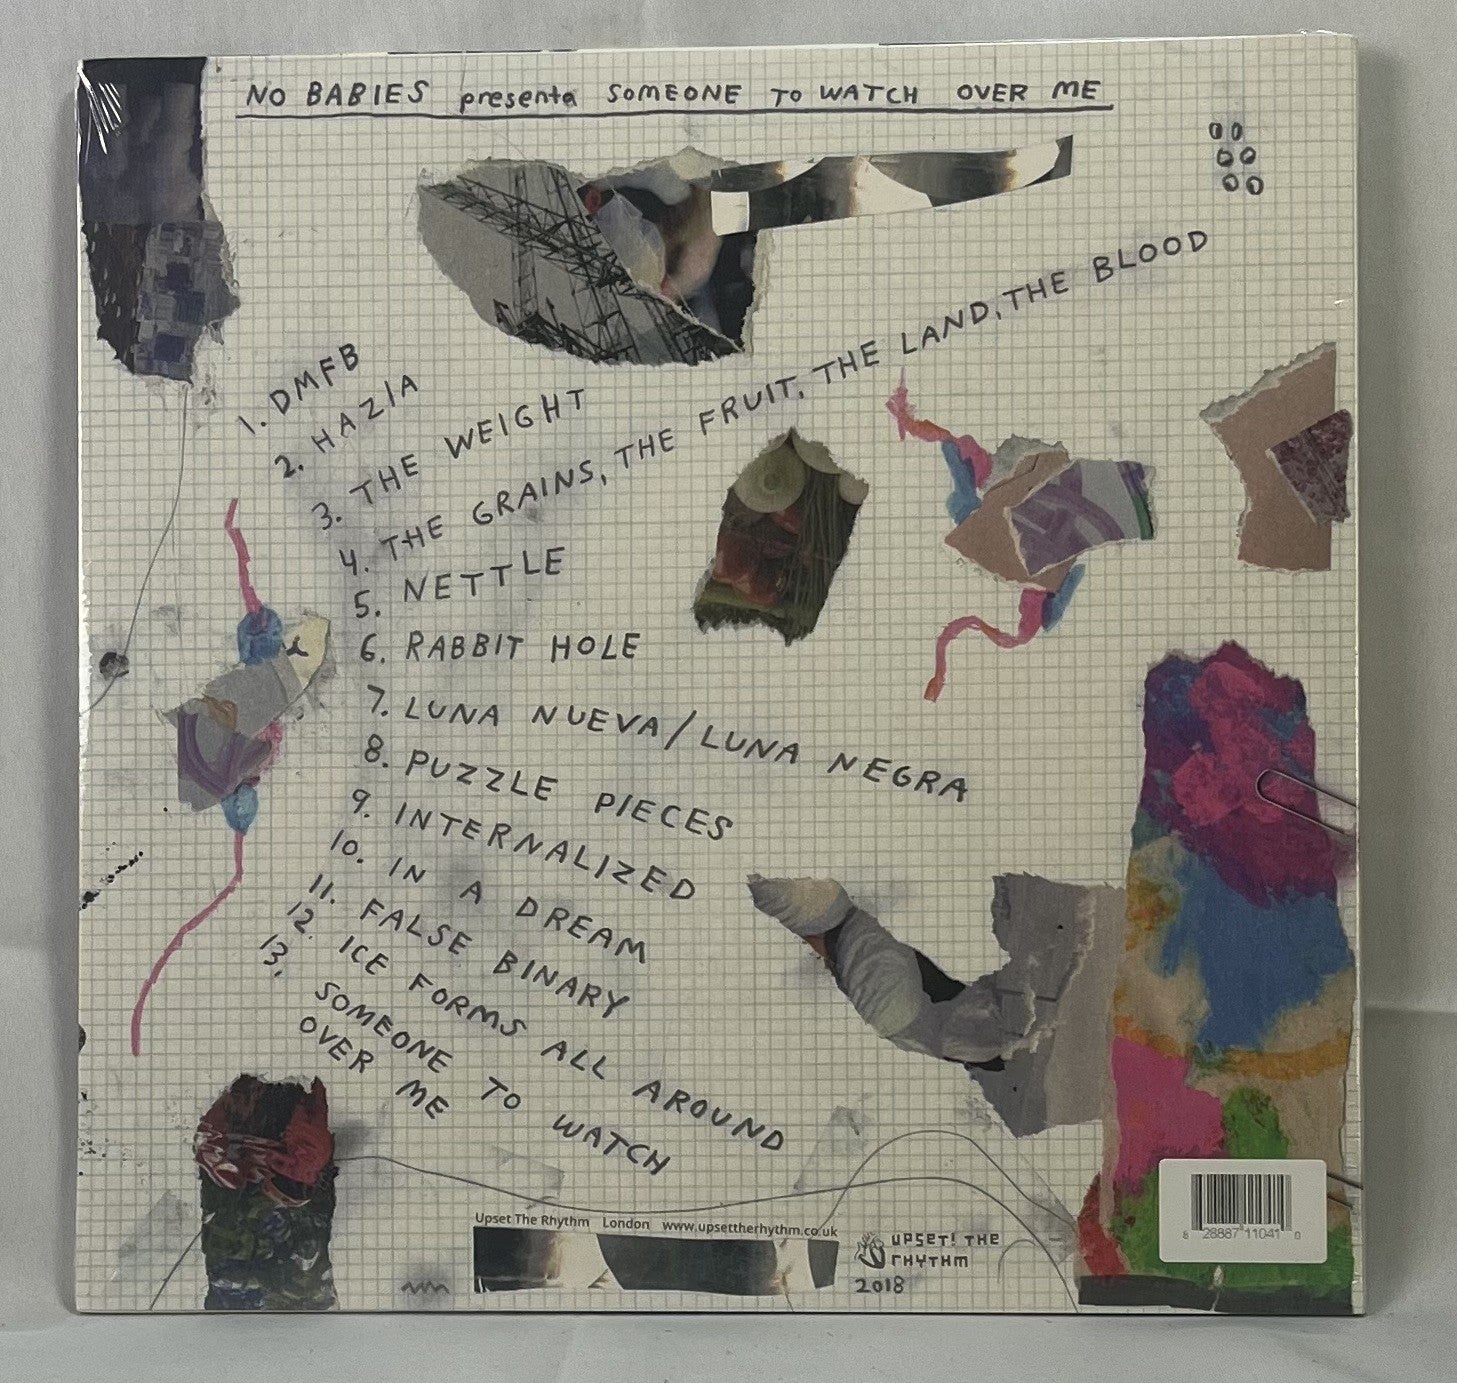 NO BABIES presenta SOMEONE TO WATCH OVER ME
1. DMFB
2. HAZIA
3. THE WEIGHT
4. THE GRAINS, THE FRUIT, THE LAND, THE BLOOD
5. NETTLE
6. RABBIT HOLE
7. LUNA NUEVA/LUNA NEGRA
8. PUZZLE PIECES
9. INTERNALIZED
10. IN A DREAM
11. FALSE BINARY
12. ICE FORMS ALL AROUND
13. SOMEONE TO WATCH
OVER ME
Upset The Rhythm London www.upsettherhythm.co.uk
UPSET! THE
RHYTHM
2018
8 28887 11041 0